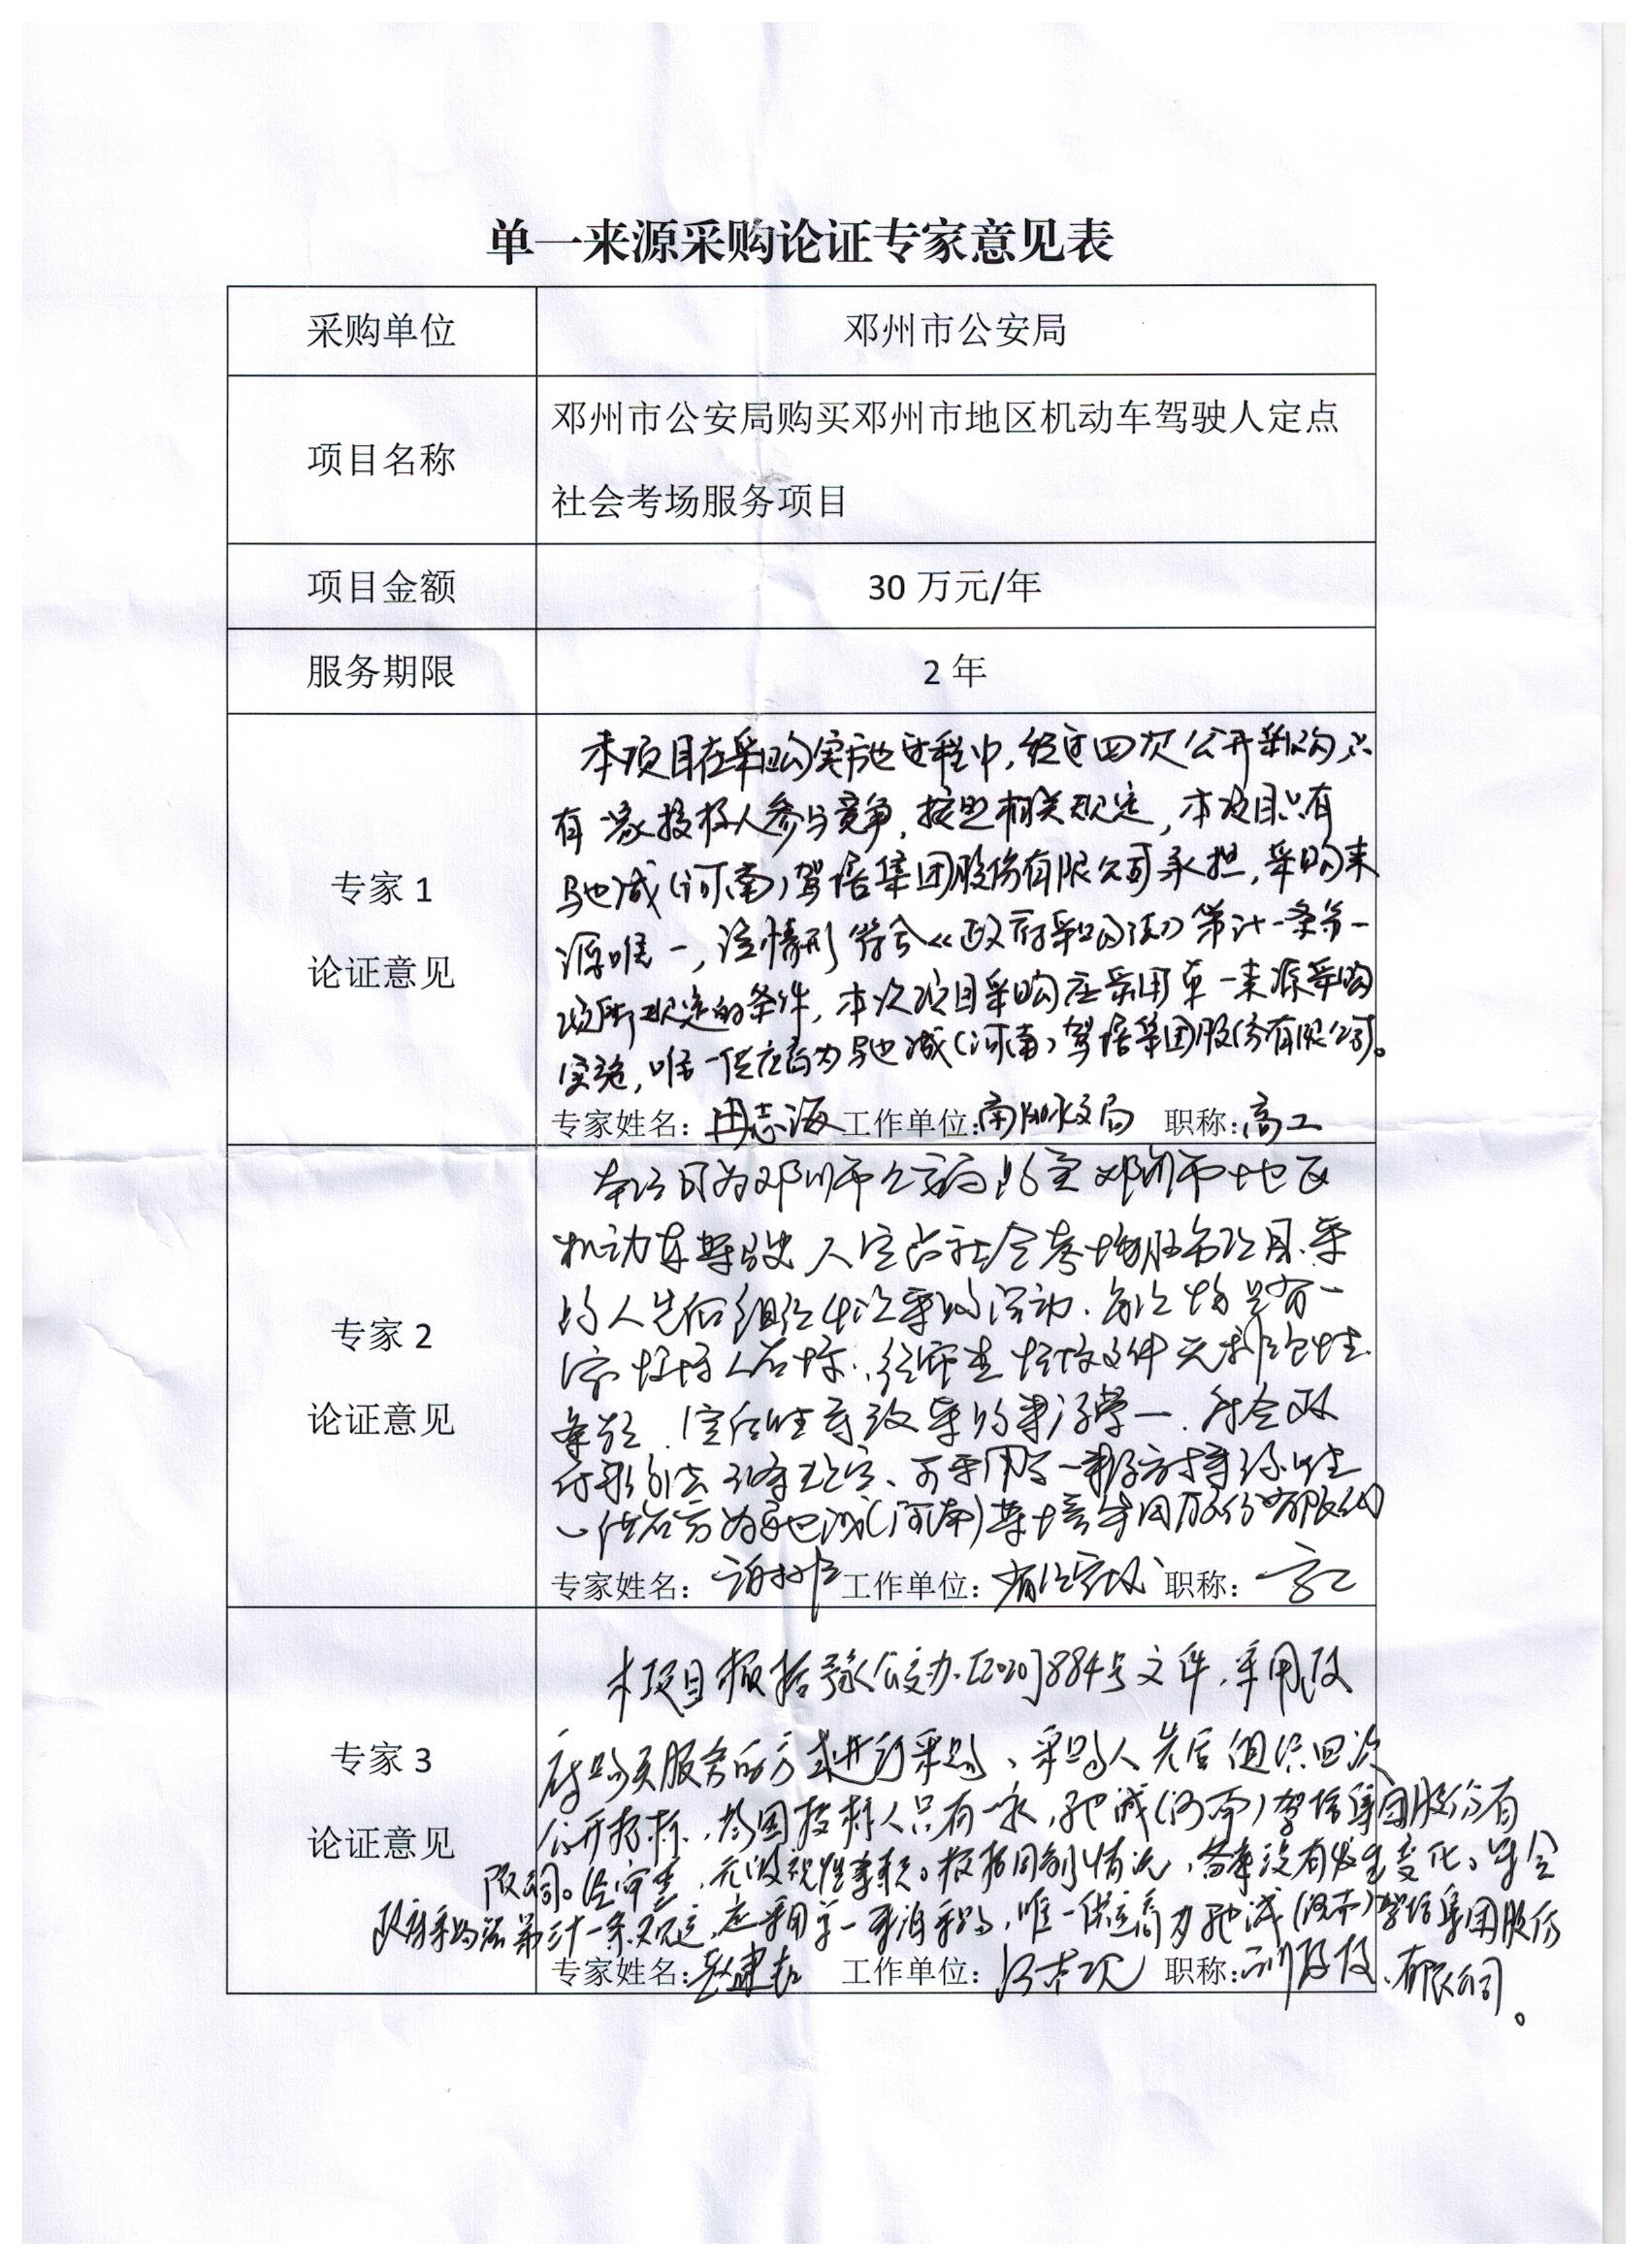 单一来源采购论证专家意见表
采购单位
邓州市公安局
项目名称
邓州市公安局购买邓州市地区机动车驾驶人定点
社会考场服务项目
项目金额
30 万元/年
服务期限
2 年
专家 1
论证意见
本项目在采购实施过程中,经过四次公开采购只
有一家投标人参与竞争,按照相关规定,本项目只有
驰诚(河南)驾培集团股份有限公司承担,采购来
源唯一,该情形符合《政府采购法》第卅一条第一
项所规定的条件,本次项目采购应采用单一来源采购
实施,唯一供应商为驰诚(河南)驾培集团股份有限公司。
专家姓名: 志海 工作单位: 局 职称: 高工
专家 2
论证意见
本项目为邓州市公安局购买邓州市地区
机动车驾驶人定点社会考场服务项目.采
购人先后组织4次采购活动.每次均只有一
家投标人投标.经审查招标文件无排他性
条款.定向性导致采购来源单一.符合政
府采购法31条规定、可采用单一来源方式采购唯
一供应商为驰诚(河南)驾培集团股份有限公司
专家姓名: 工作单位: 职称: 高工
专家 3
论证意见
本项目根据豫公交办.[2020]884号文件.采用政
府购买服务的方式进行采购、采购人先后组织四次
公开招标.参与投标人只有一家,驰诚(河南)驾培集团股份有
限公司。经审查,无歧视性条款。根据同前情况,备案没有发生变化。符合
政府采购法第三十一条规定,应采用单一来源采购,唯一供应商为驰诚(河南)驾培集团股份
有限公司。
专家姓名: 工作单位: 职称: 副教授